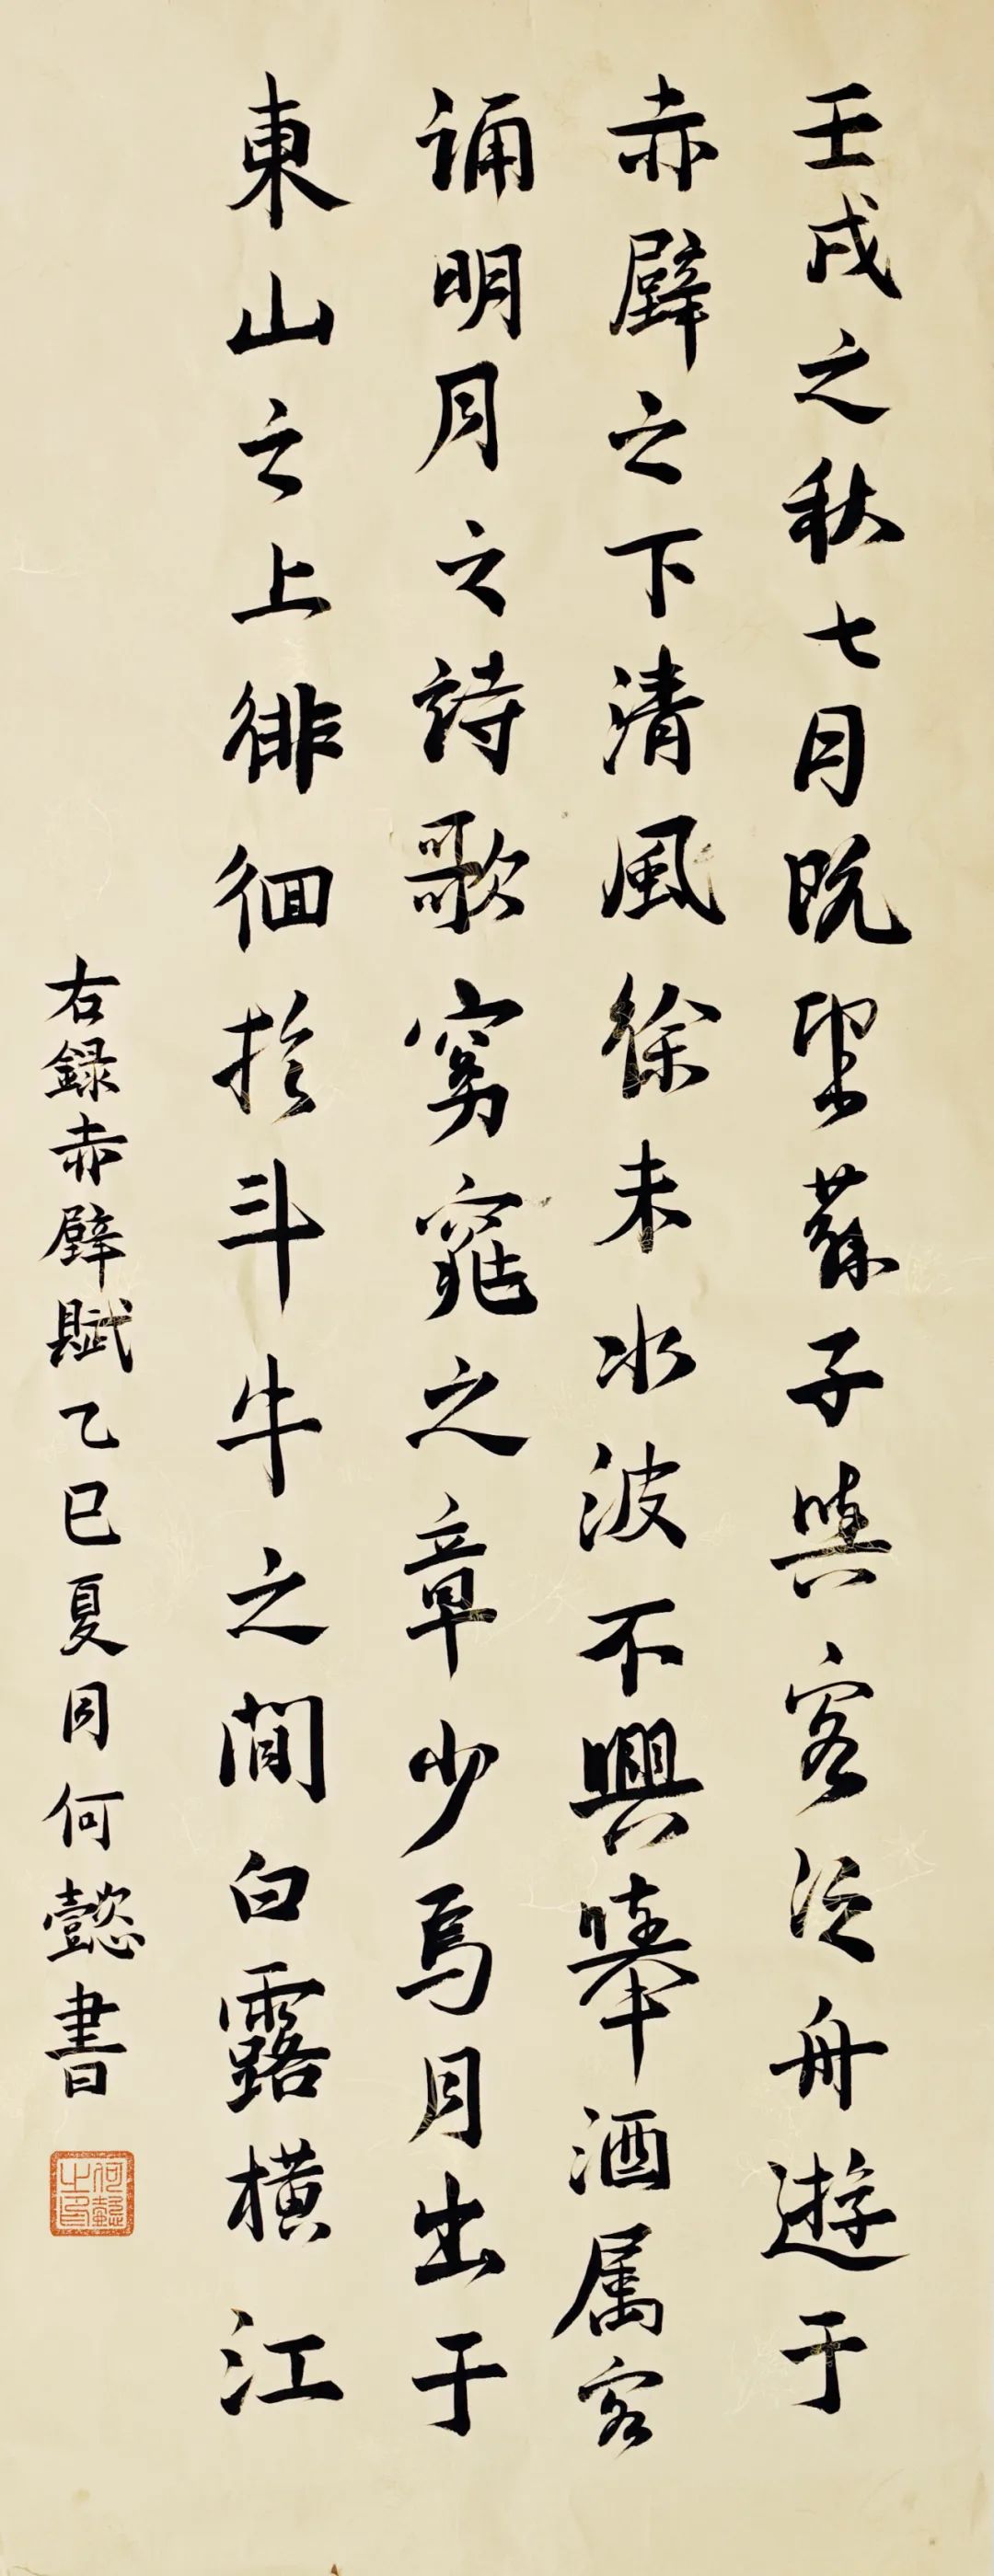 壬戌之秋七月既望蘇子與客泛舟遊于
赤壁之下清風徐来水波不興舉酒属客
誦明月之詩歌窈窕之章少焉月出于
東山之上徘徊於斗牛之間白露橫江
右録赤壁賦乙巳夏月何懿書
何懿之印